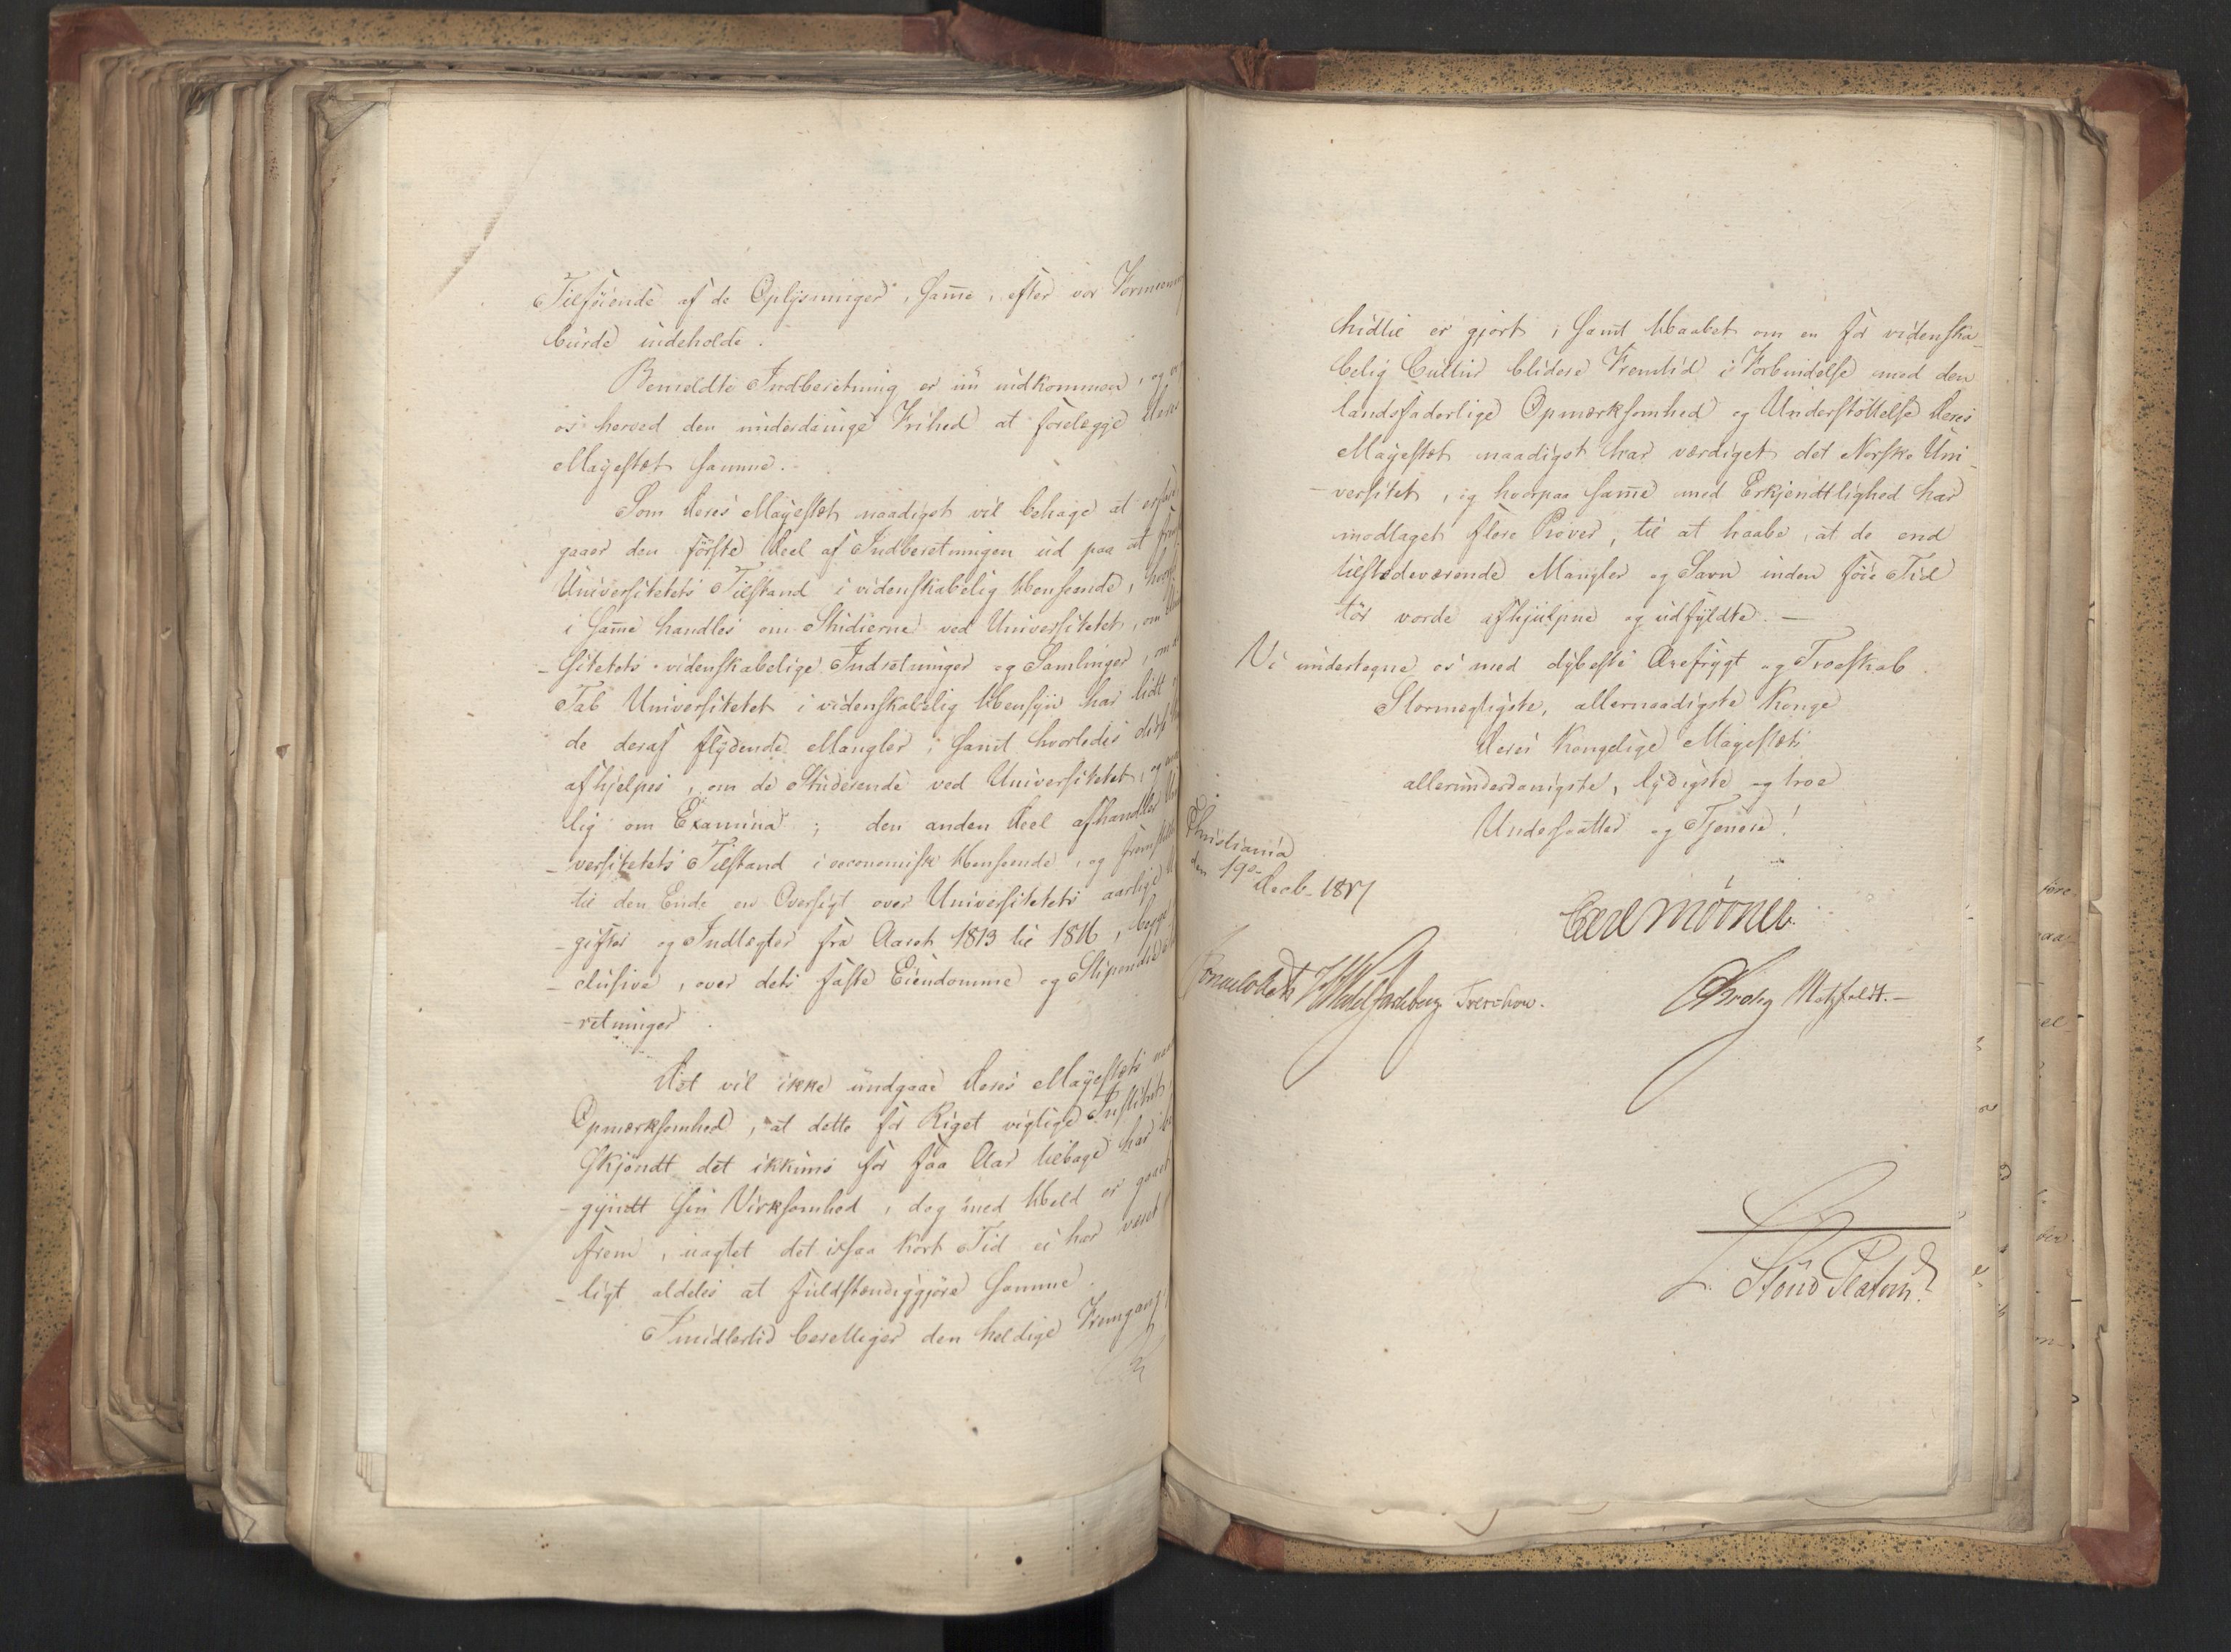 Tilføiende af de Oplysninger, same, efter vor Formening
burde indeholde.
Bemeldte Indberetning er nu indkommen, og
os herved den underdanige Frihed at forelægge Deres
Mayestæt samme.
Som Deres Mayestæt naadigst vil behage at erfare
gaaer den første Deel af Indberetningen ud paa at
Universitetets Tilstand i videnskabelig Henseende,
i same handles om Studierne ved Universitetet, om
-sitetets videnskabelige Indretninger og Samlinger, om
Tab Universitetet i videnskabelig Hensyn har lidt
de deraf flydende Mangler, samt hvorledes disse
afhjelpes, om de Studerende ved Universitetet, og
lig om Examina; den anden Deel afhandler
-versitetets Tilstand i oeconomisk Henseende, og fremstiller
til den Ende en Oversigt over Universitetets aarlige
-gifter og Indtægter fra Aaret 1813 til 1816, begge
-clusive, over dets faste Eiendomme og Stipendie
-retninger.
Det vil ikke undgaae Deres Mayestæts
Opmærksomhed, at dette for Riget vigtige Institut,
skjøndt det ikkuns for faa Aar tilbage har
-gyndt sin Virksomhed, dog med Held er gaaet
frem, uagtet det i saa kort Tid ei har været
-ligt aldeles at fuldstændiggjøre samme.
Imidlertid berettiger den heldige Fremgang,
hidtil er gjort, samt Haabet om en for videnska-
belig Cultur blidere Fremtid i Forbindelse med den
landsfaderlige Opmærksomhed og Understøttelse Deres
Mayestæt naadigst har værdiget det Norske Uni-
-versitet, og hvorpaa same med Erkjendtlighed har
modtaget flere Prøver, til at haabe, at de end
tilstedeværende Mangler og Savn inden føie Tid
tør vorde afhjulpne og udfyldte. —
Vi undertegne os med dybeste Ærefrygt og Troeskab.
Stormægtigste, allernaadigste Konge
Deres Kongelige Mayestæts
allerunderdanigste, lydigste og troe
Undersaatter og Tjenere!
Christiania
den 19de Decb. 1817
Carl Mörner.
Sommerhielm HWedel Jarlsberg Treschow.
CKrohg Motzfeldt. —
L. Stoud Platou